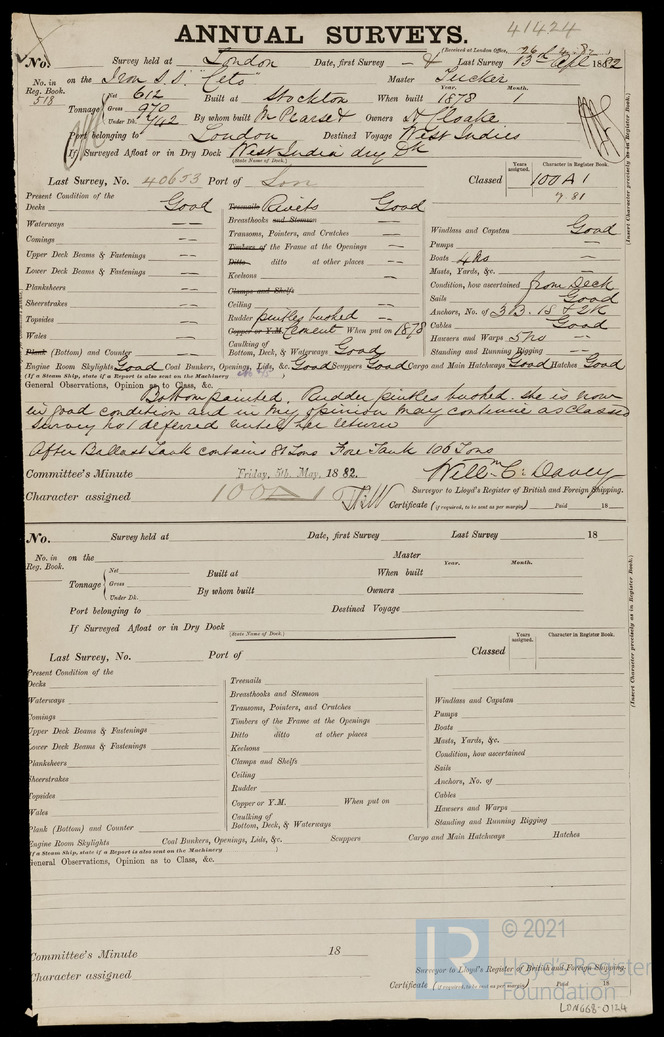 41424
ANNUAL SURVEYS.
(Received at London Office,
No. Survey held at London Date, first Survey Last Survey 13th Apl 1882
No. in on the Iron S.S. "Ceto" Master Tucker
Reg. Book. Year. Month.
518 Tonnage Net 612 Built at Stockton When built 1878 1
Gross 970
Under Dk. 742 By whom built M Pearse & Owners
Port belonging to London Destined Voyage West Indies
If Surveyed Afloat or in Dry Dock West India dry Dk
(State Name of Dock.)
Last Survey, No. 40653 Port of Lon Classed Years assigned. Character in Register Book. 100A1
7.81
(Insert Character precisely as in Register Book.)
Present Condition of the
Decks Good
Waterways --
Comings --
Upper Deck Beams & Fastenings --
Lower Deck Beams & Fastenings --
Planksheers --
Sheerstrakes --
Topsides --
Wales --
Plank (Bottom) and Counter --
Treenails Rivets Good
Breasthooks and Stemson --
Transoms, Pointers, and Crutches --
Timbers of the Frame at the Openings --
Ditto ditto at other places --
Keelsons --
Clamps and Shelfs
Ceiling --
Rudder pintles bushed --
Copper or Y.M. Cement When put on 1878
Caulking of
Bottom, Deck, & Waterways Good
Windlass and Capstan Good
Pumps --
Boats 4 No --
Masts, Yards, &c. --
Condition, how ascertained from Deck
Sails Good
Anchors, No. of 3B. 1S & 2K
Cables Good
Hawsers and Warps 5 No --
Standing and Running Rigging --
Engine Room Skylights Good Coal Bunkers, Openings, Lids, &c. Good Scuppers Good Cargo and Main Hatchways Good Hatches Good
(If a Steam Ship, state if a Report is also sent on the Machinery )
General Observations, Opinion as to Class, &c.
Bottom painted. Rudder pintles bushed. She is now
in good condition and in my opinion may continue as classed
Survey no 1 deferred until her return
After Ballast Tank contains 81 Tons Fore Tank 106 Tons
Committee's Minute Friday, 5th. May, 1882. Willm. C. Davey
Character assigned 100A1 Surveyor to Lloyd's Register of British and Foreign Shipping.
Certificate (if required, to be sent as per margin) Paid 18
No. Survey held at Date, first Survey Last Survey 18
No. in on the Master
Reg. Book. Year. Month.
Tonnage Net Built at When built
Gross
Under Dk. By whom built Owners
Port belonging to Destined Voyage
If Surveyed Afloat or in Dry Dock
(State Name of Dock.)
Last Survey, No. Port of Classed Years assigned. Character in Register Book.
(Insert Character precisely as in Register Book.)
Present Condition of the
Decks
Waterways
Comings
Upper Deck Beams & Fastenings
Lower Deck Beams & Fastenings
Planksheers
Sheerstrakes
Topsides
Wales
Plank (Bottom) and Counter
Treenails
Breasthooks and Stemson
Transoms, Pointers, and Crutches
Timbers of the Frame at the Openings
Ditto ditto at other places
Keelsons
Clamps and Shelfs
Ceiling
Rudder
Copper or Y.M. When put on
Caulking of
Bottom, Deck, & Waterways
Windlass and Capstan
Pumps
Boats
Masts, Yards, &c.
Condition, how ascertained
Sails
Anchors, No. of
Cables
Hawsers and Warps
Standing and Running Rigging
Engine Room Skylights Coal Bunkers, Openings, Lids, &c. Scuppers Cargo and Main Hatchways Hatches
(If a Steam Ship, state if a Report is also sent on the Machinery )
General Observations, Opinion as to Class, &c.
Committee's Minute 18
Character assigned
Surveyor to Lloyd's Register of British and Foreign Shipping.
Certificate (if required, to be sent as per margin) Paid 18
LR © 2021
Lloyd's Register
Foundation
LDN668-0124